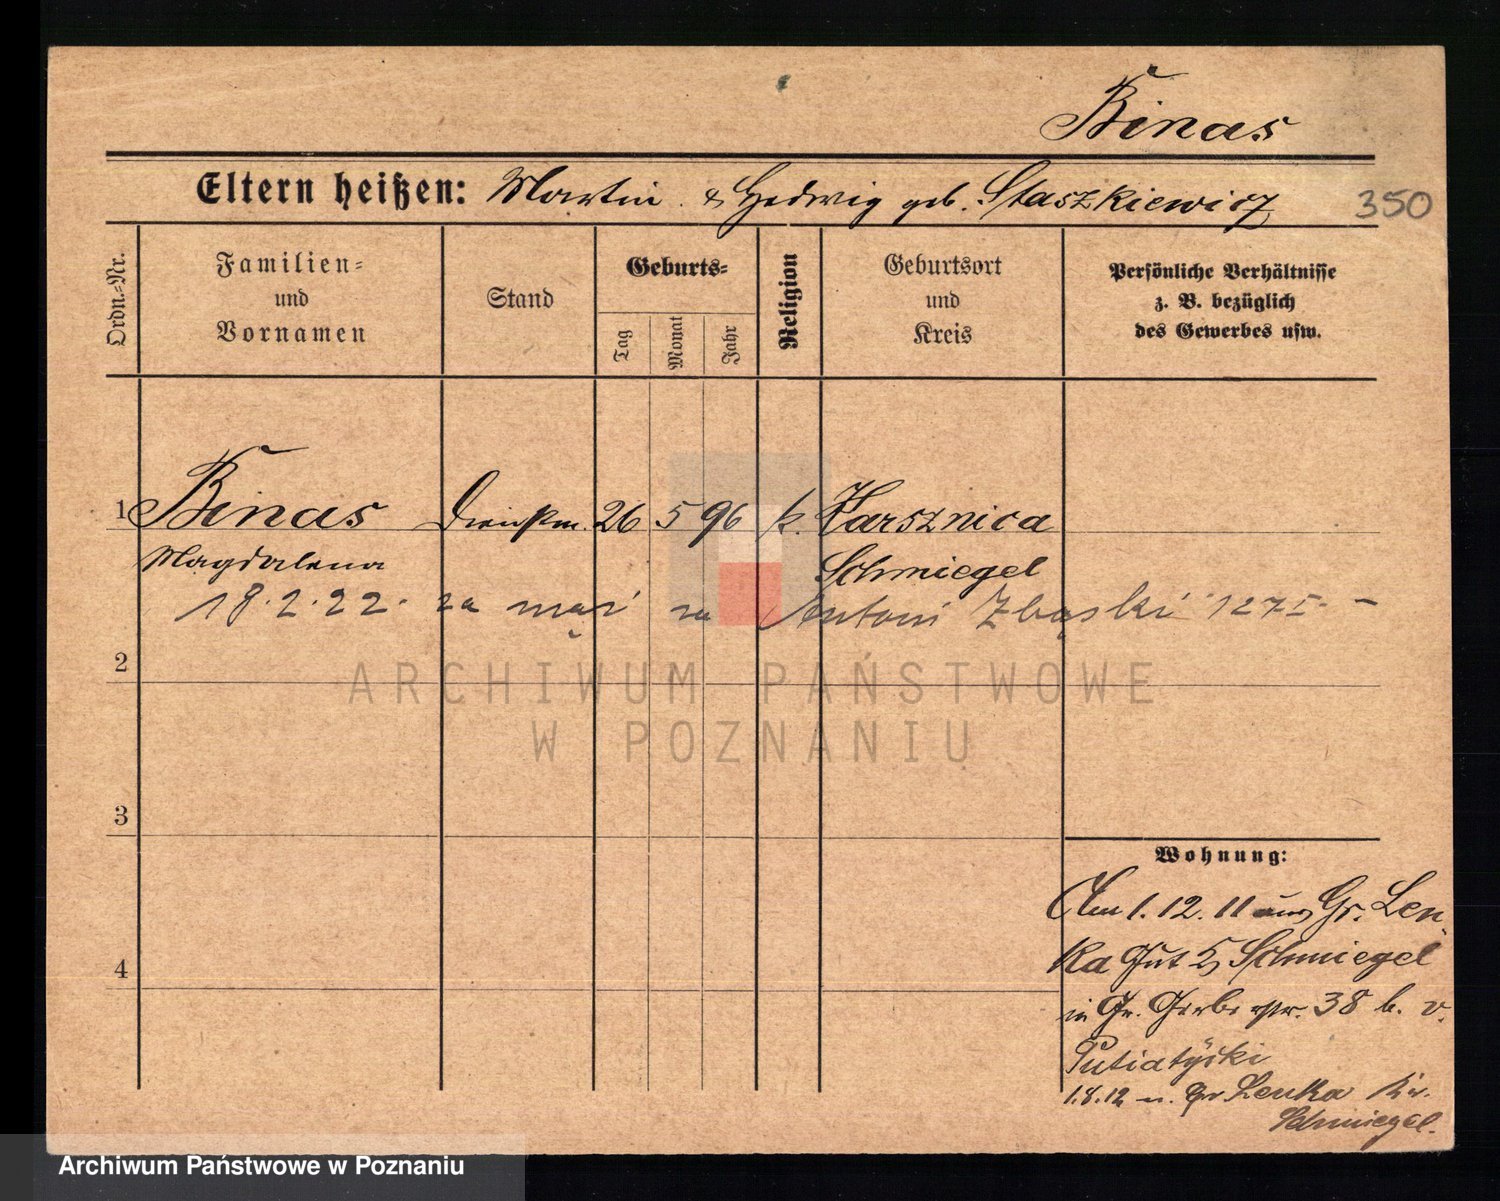 Binas
Eltern heißen: Martin & Hedwig geb. Staszkiewicz
350
Ordn.=Nr.
Familien=
und
Vornamen
Stand
Geburts=
Tag
Monat
Jahr
Religion
Geburtsort
und
Kreis
Persönliche Verhältnisse
z. B. bezüglich
des Gewerbes usw.
1 Binas Dienstm. 26 5 96 k. Karsznica
Magdalena Schmiegel
18.2.22. za mąż za Antoni Zbąski 1275
ARCHIWUM PAŃSTWOWE
W POZNANIU
2
3
4
Wohnung:
Am 1.12.11 aus Gr. Len-
ka Gut Schmiegel
in Gr. Gerberstr. 38 b. v.
Putiatycki
1.8.12 n. Gr Lenka Kr.
Schmiegel.
Archiwum Państwowe w Poznaniu